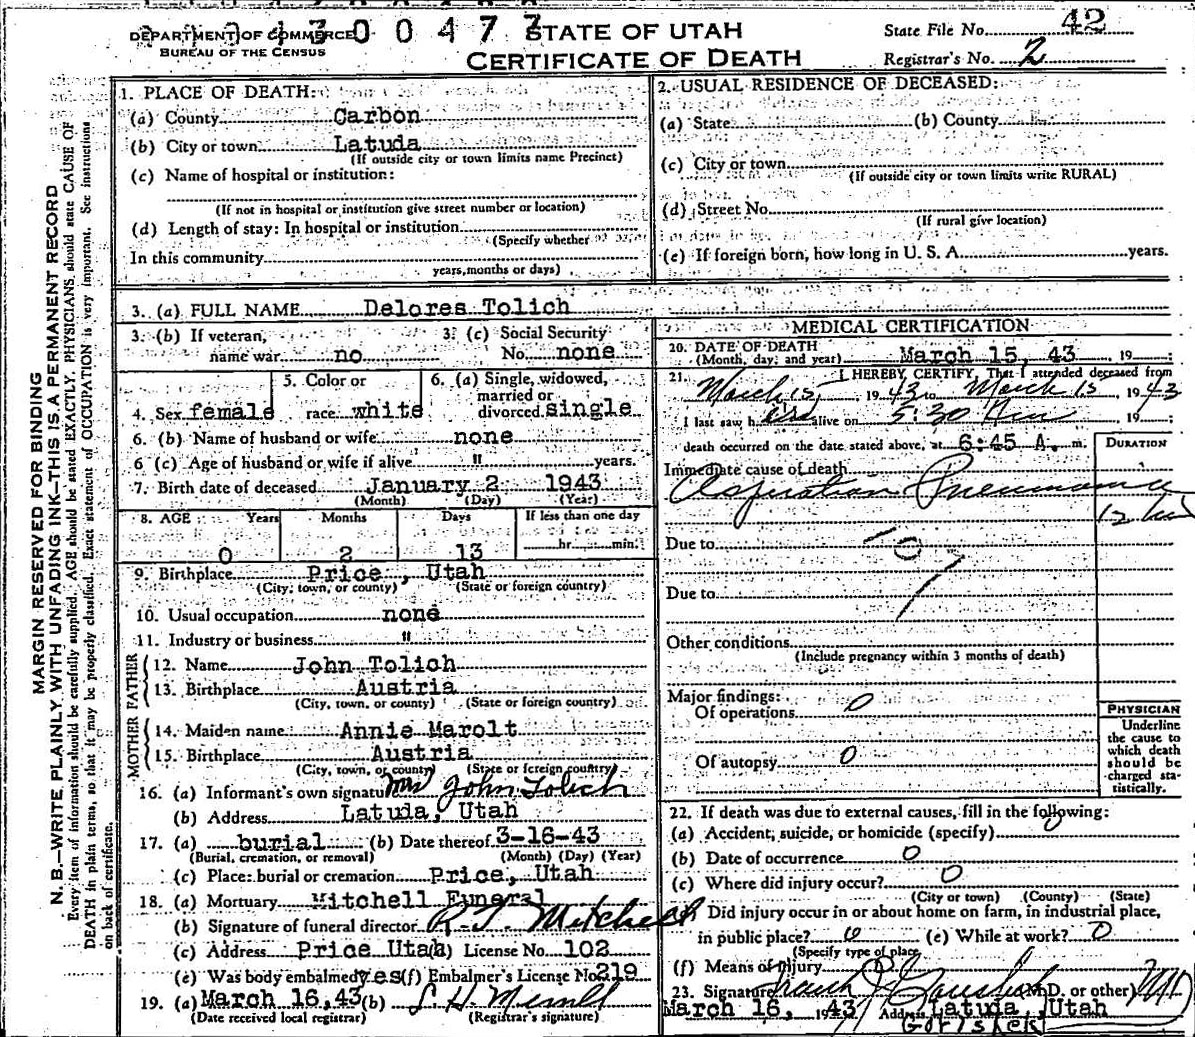 DEPARTMENT OF COMMERCE
BUREAU OF THE CENSUS
300477
STATE OF UTAH
CERTIFICATE OF DEATH
State File No. 42
Registrar's No. 2
MARGIN RESERVED FOR BINDING
N. B.—WRITE PLAINLY, WITH UNFADING INK—THIS IS A PERMANENT RECORD
Every item of information should be carefully supplied. AGE should be stated EXACTLY. PHYSICIANS should state CAUSE OF
DEATH in plain terms, so that it may be properly classified. Exact statement of OCCUPATION is very important. See instructions
on back of certificate.
1. PLACE OF DEATH:
(a) County Carbon
(b) City or town Latuda
(If outside city or town limits name Precinct)
(c) Name of hospital or institution:
(If not in hospital or institution give street number or location)
(d) Length of stay: In hospital or institution
(Specify whether
In this community
years, months or days)
2. USUAL RESIDENCE OF DECEASED:
(a) State (b) County
(c) City or town
(If outside city or town limits write RURAL)
(d) Street No.
(If rural give location)
(e) If foreign born, how long in U. S. A. years.
3. (a) FULL NAME Delores Tolich
3. (b) If veteran,
name war no
3. (c) Social Security
No. none
4. Sex female
5. Color or
race white
6. (a) Single, widowed,
married or
divorced single
6. (b) Name of husband or wife none
6 (c) Age of husband or wife if alive " years.
7. Birth date of deceased January 2 1943
(Month) (Day) (Year)
8. AGE Years Months Days If less than one day
0 2 13 hr. min.
9. Birthplace Price, Utah
(City, town, or county) (State or foreign country)
10. Usual occupation none
11. Industry or business "
FATHER
12. Name John Tolich
13. Birthplace Austria
(City, town, or county) (State or foreign country)
MOTHER
14. Maiden name Annie Marolt
15. Birthplace Austria
(City, town, or county) (State or foreign country)
16. (a) Informant's own signature Mrs John Tolich
(b) Address Latuda, Utah
17. (a) burial (b) Date thereof 3-16-43
(Burial, cremation, or removal) (Month) (Day) (Year)
(c) Place: burial or cremation Price, Utah
18. (a) Mortuary Mitchell Funeral
(b) Signature of funeral director R. T. Mitchell
(c) Address Price Utah (d) License No. 102
(e) Was body embalmed yes (f) Embalmer's License No. 219
19. (a) March 16, 43 (b)
(Date received local registrar) (Registrar's signature)
MEDICAL CERTIFICATION
20. DATE OF DEATH
(Month, day, and year) March 15, 43 , 19 ;
21. I HEREBY CERTIFY, That I attended deceased from
March 15, 1943 to March 15 1943
I last saw h alive on 5:30 Am 19 ;
death occurred on the date stated above, at 6:45 A. m.
DURATION
Immediate cause of death
Aspiration Pneumonia
12 hrs
Due to 0
Due to
Other conditions
(Include pregnancy within 3 months of death)
Major findings:
Of operations 0
Of autopsy 0
PHYSICIAN
Underline
the cause to
which death
should be
charged sta-
tistically.
22. If death was due to external causes, fill in the following:
(a) Accident, suicide, or homicide (specify) 0
(b) Date of occurrence 0
(c) Where did injury occur? 0
(City or town) (County) (State)
Did injury occur in or about home on farm, in industrial place,
in public place? 0 (e) While at work? 0
(Specify type of place)
(f) Means of Injury 0
23. Signature Frank J. Gorishek (M.D. or other) MD
March 16, 1943 Address Latuda, Utah
Gorishek